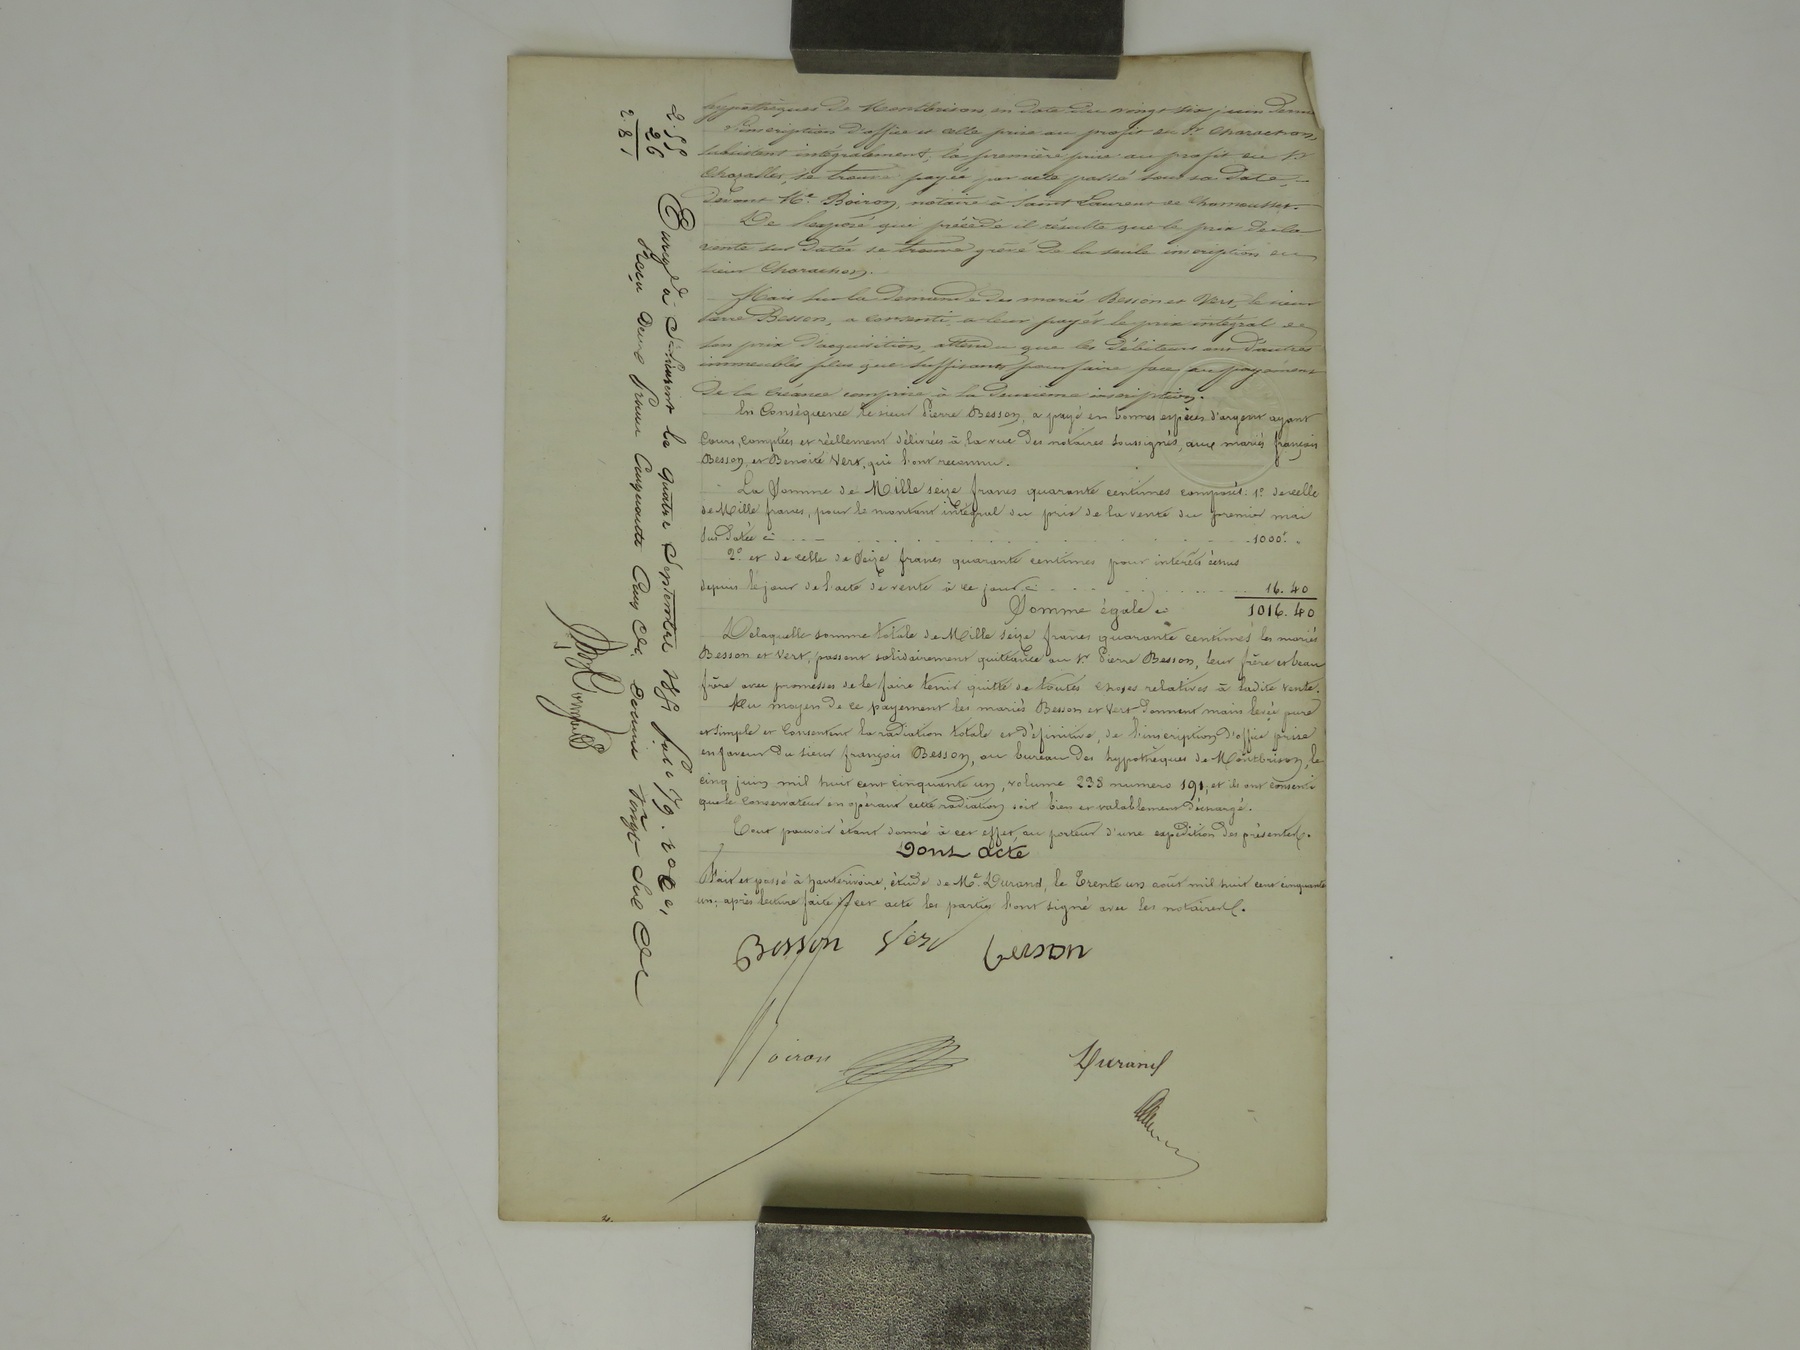 hypothèques de Montbrison, en date du vingt six juin dernier
L'inscription d'office et celle prise au profit du Sr Charachon,
subsistent intégralement, la première prise au profit du Sr
Chazalles, se trouve payée par acte passé sous sa date,
devant Me Boiron, notaire à Saint Laurent de Chamousset.
De l'exposé qui précède il résulte que le prix de la
vente sus datée se trouve grévé de la seule inscription du
sieur Charachon.
Mais sur la demande des mariés Besson et Vert, le sieur
Pierre Besson, a consenti, à leur payer le prix intégral de
son prix d'acquisition, attendu que les débiteurs ont d'autres
immeubles plus que suffisants pour faire face au payement
de la créance comprise à la deuxième inscription.
En Conséquence le sieur Pierre Besson, a payé en bonnes espèces d'argent ayant
Cours, comptées et réellement délivrées à la vue des notaires soussignés, aux mariés françois
Besson, et Benoite Vert, qui l'ont reconnu.
La Somme de Mille seize francs quarante centimes composée: 1º de celle
de Mille francs, pour le montant intégral du prix de la vente du premier mai
sus datée ci 1000f. "
2º et de celle de Seize francs quarante centimes pour intérêts échus
depuis le jour de l'acte de vente à ce jour ci 16. 40
Somme égale ci 1016. 40
De laquelle somme totale de Mille seize francs quarante centimes les mariés
Besson et Vert, passent solidairement quittance au Sr Pierre Besson, leur frère et beau
frère avec promesses de le faire tenir quitte de toutes choses relatives à ladite vente.
Au moyen de ce payement les mariés Besson et Vert donnent main levée pure
et simple et Consentent la radiation totale et définitive, de l'inscription d'office prise
en faveur du sieur françois Besson, au bureau des hypothèques de Montbrison, le
cinq juin mil huit cent cinquante un, volume 233 numero 191, et ils ont consenti
que le Conservateur en opérant cette radiation, soit bien et valablement déchargé.
Tout pouvoir étant donné à cet effet, au porteur d'une expédition des présentes.
Dont acte
Fait et passé à hauterivoire, étude de Me Durand, le Trente un août mil huit cent cinquante
un; après lecture faite de cet acte les parties l'ont signé avec les notaires.
Besson Vert besson
Boiron Durand
2. 55
26
2. 81
Enregé à St Laurent le quatre Septembre
Reçu deux francs Cinquante Cinq Ces. décime Vingt Six Ces